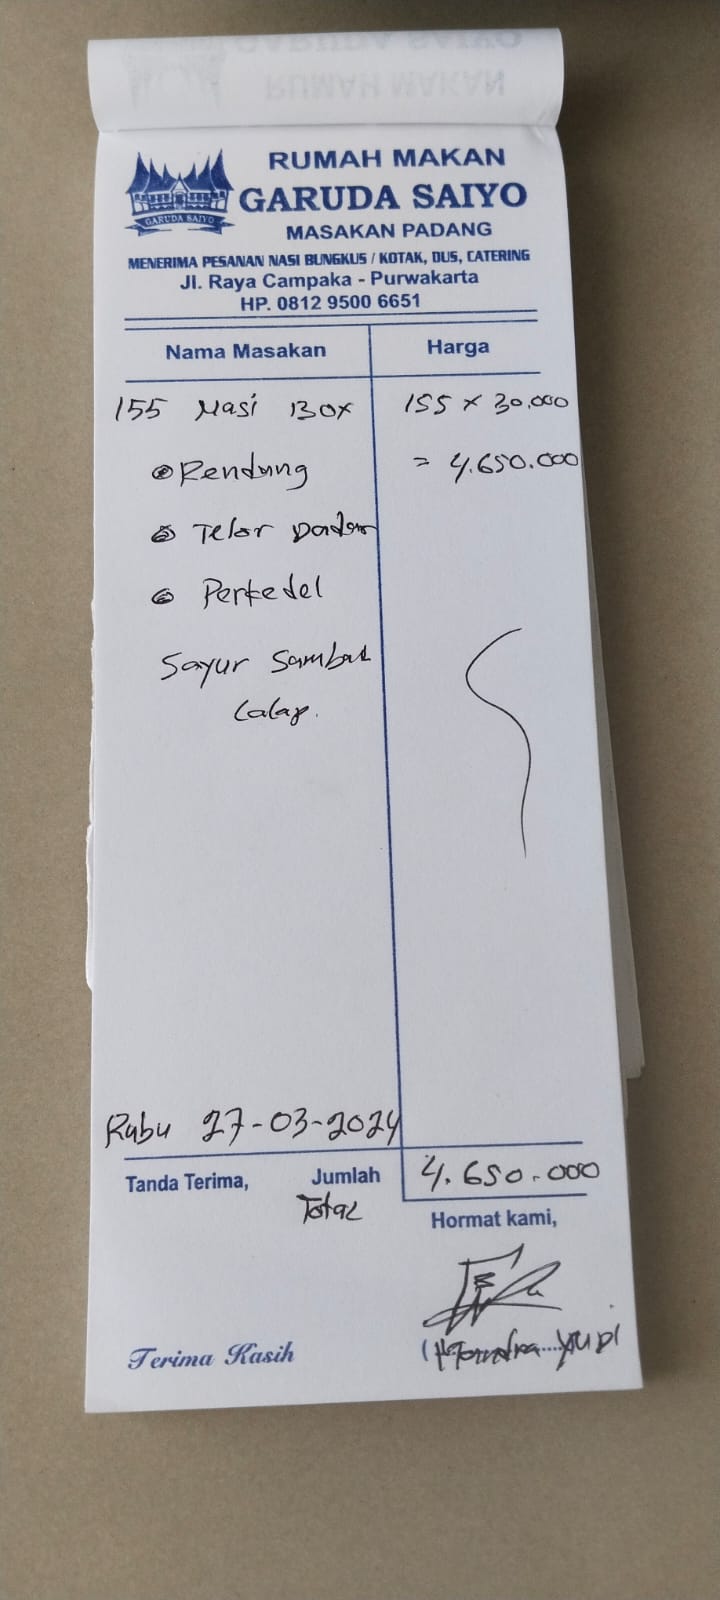 RUMAH MAKAN
GARUDA SAIYO
GARUDA SAIYO
MASAKAN PADANG
MENERIMA PESANAN NASI BUNGKUS / KOTAK, DUS, CATERING
Jl. Raya Campaka - Purwakarta
HP. 0812 9500 6651
Nama Masakan Harga
155 Nasi BOX 155 x 30.000
Rendang = 4.650.000
Telor Dadar
Perkedel
Sayur Sambal
Lalap.
Rabu 27-03-2024
Tanda Terima, Jumlah 4.650.000
Total
Hormat kami,
Terima Kasih